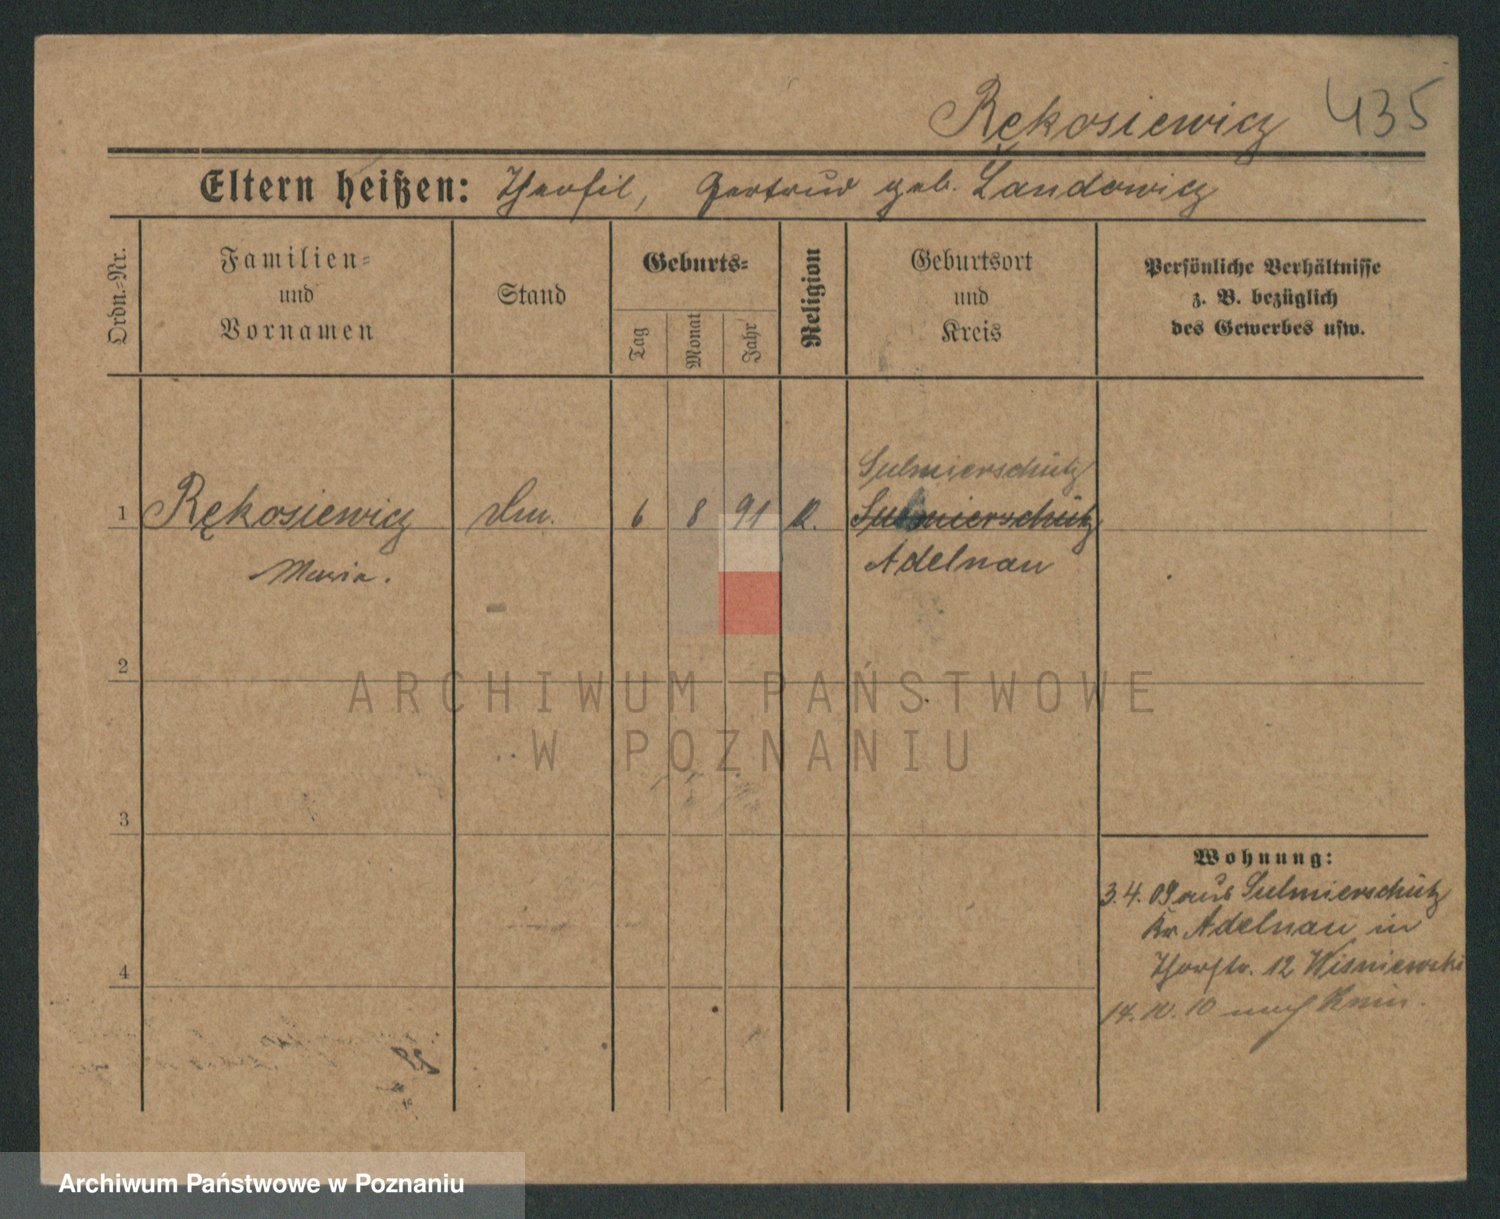 Rękosiewicz 435
Eltern heißen: Theofil, Gertrud geb. Landowicz
Ordn.-Nr.
Familien-
und
Vornamen
Stand
Geburts-
Tag
Monat
Jahr
Religion
Geburtsort
und
Kreis
Persönliche Verhältnisse
z. B. bezüglich
des Gewerbes usw.
Sulmierschütz
1 Rękosiewicz 6 8 91 K. Sulmierschütz
Maria. Adelnau
2
ARCHIWUM PAŃSTWOWE
W POZNANIU
3
Wohnung:
3.4.09 aus Sulmierschütz
Kr Adelnau in
12 Wisniewski
4
14.10.10 nach
Archiwum Państwowe w Poznaniu